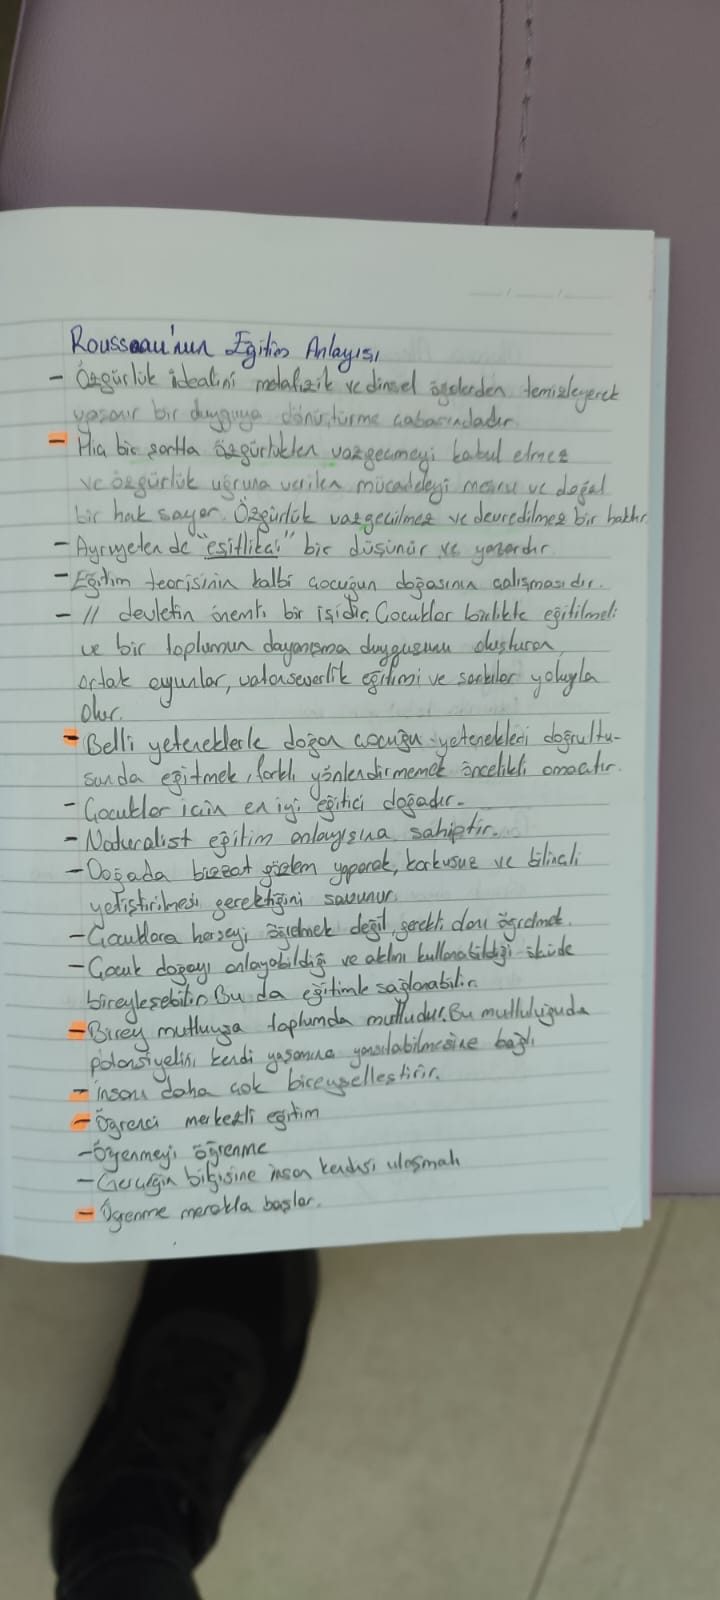 Rousseau'nun Eğitim Anlayışı
- Özgürlük idealini metafizik ve dinsel öğelerden temizleyerek
yaşanır bir duyguya dönüştürme çabasındadır.
- Hiç bir şartta özgürlükten vazgeçmeyi kabul etmez
ve özgürlük uğruna verilen mücadeleyi meşru ve doğal
bir hak sayar. Özgürlük vazgeçilmez ve devredilmez bir haktır.
- Ayrıyeten de "eşitlikçi" bir düşünür ve yazardır.
- Eğitim teorisinin kalbi çocuğun doğasının çalışmasıdır.
- // devletin önemli bir işidir. Çocuklar birlikte eğitilmeli
ve bir toplumun dayanışma duygusunu oluşturan,
ortak oyunlar, vatanseverlik eğitimi ve şarkılar yoluyla
olur.
- Belli yeteneklerle doğan çocuğu yetenekleri doğrultu-
sunda eğitmek, farklı yönlendirmemek öncelikli amaçtır.
- Çocuklar için en iyi eğitici doğadır.
- Naturalist eğitim anlayışına sahiptir.
- Doğada bizzat gözlem yaparak, korkusuz ve bilinçli
yetiştirilmesi gerektiğini savunur.
- Çocuklara herşeyi öğretmek değil, gerekli olanı öğretmek.
- Çocuk doğayı anlayabildiği ve aklını kullanabildiği ölçüde
bireyleşebilir. Bu da eğitimle sağlanabilir.
- Birey mutluysa toplumda mutludur. Bu mutluluğuda
potansiyelini kendi yaşamına yansıtabilmesine bağlı
- İnsanı daha çok bireyselleştirir.
- Öğrenci merkezli eğitim
- Öğenmeyi öğrenme
- Gerçeğin bilgisine insan kendisi ulaşmalı
- Öğrenme merakla başlar.